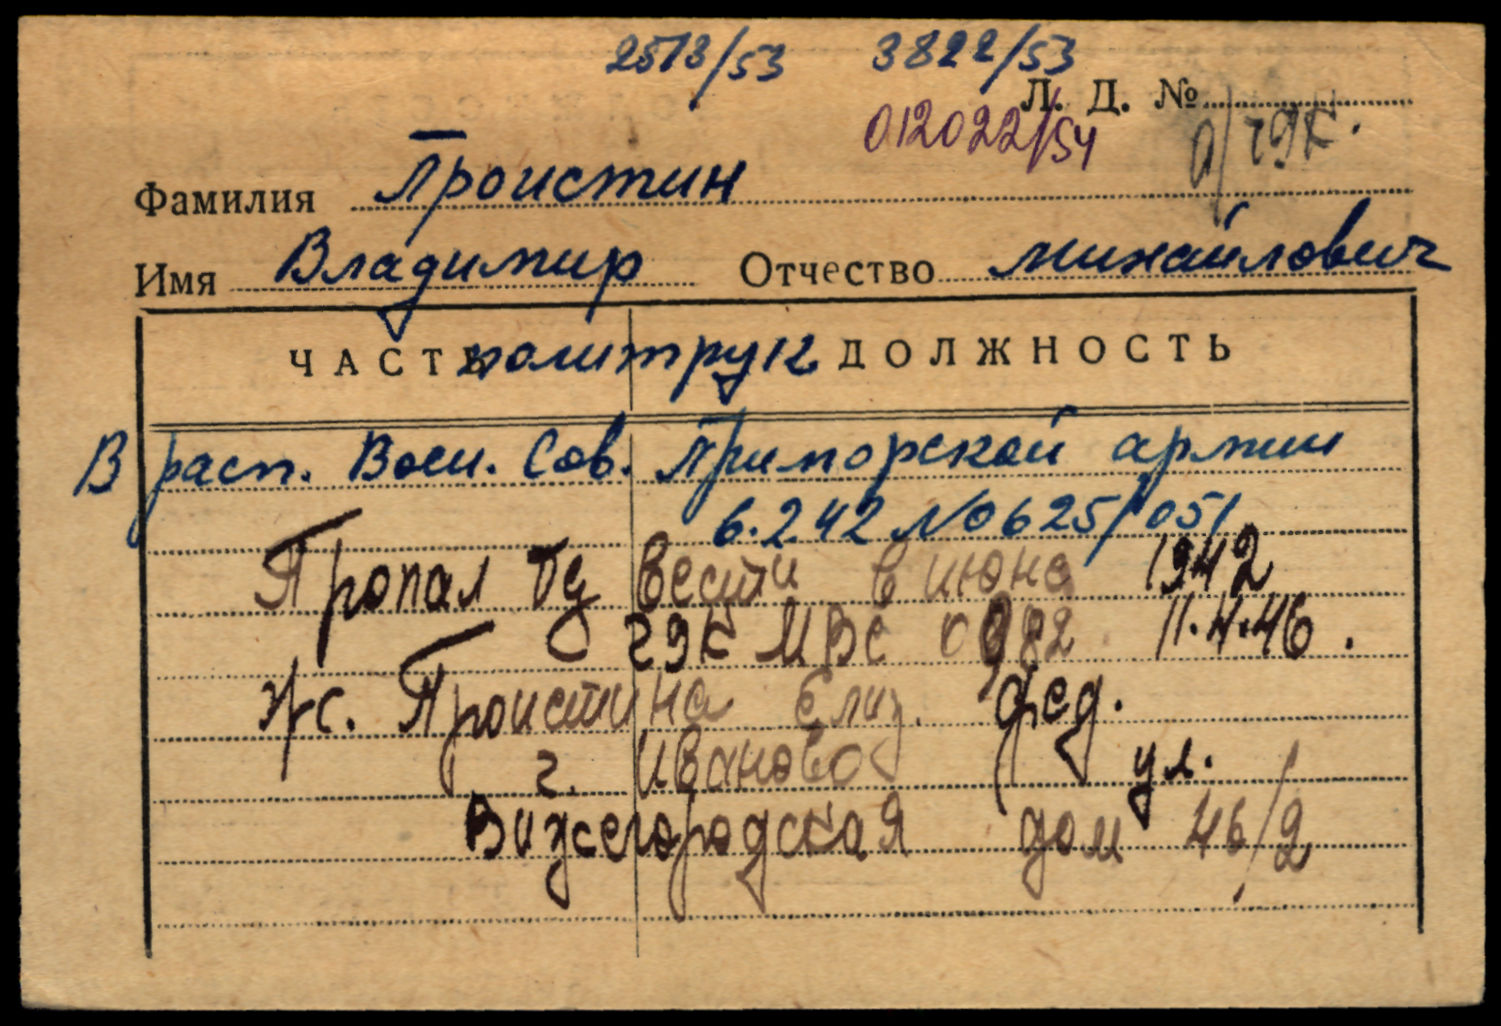 2573/53 3822/53
Л. Д. №
012022/54 О/ГЭК.
Фамилия Проистин
Имя Владимир Отчество Михайлович
ЧАСТЬ политрук ДОЛЖНОСТЬ
В расп. Воен. Сов. Приморской армии
6.2.42 № 0625/051
Пропал без вести в июне 1942
ГУК МВС 0982 11.4.46.
Ж. Проистина Елиз. Фед.
г. Иваново ул.
Вижегородская дом 46/2